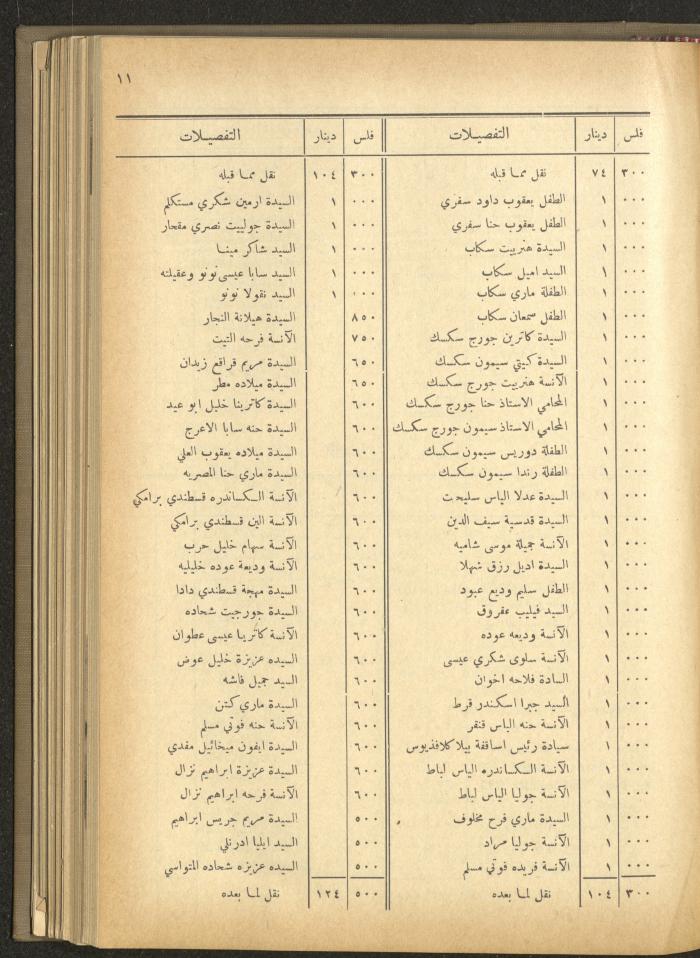 ١١
فلس دينار التفصيلات
٣٠٠ ٧٤ نقل مما قبله
٠٠٠ ١ الطفل يعقوب داود سفري
٠٠٠ ١ الطفل يعقوب حنا سفري
٠٠٠ ١ السيدة هنرييت سكاب
٠٠٠ ١ السيد اميل سكاب
٠٠٠ ١ الطفلة ماري سكاب
٠٠٠ ١ الطفل سمعان سكاب
٠٠٠ ١ السيدة كاترين جورج سكسك
٠٠٠ ١ السيدة كيتي سيمون سكسك
٠٠٠ ١ الآنسة هنرييت جورج سكسك
٠٠٠ ١ المحامي الاستاذ حنا جورج سكسك
٠٠٠ ١ المحامي الاستاذ سيمون جورج سكسك
٠٠٠ ١ الطفلة دوريس سيمون سكسك
٠٠٠ ١ الطفلة رندا سيمون سكسك
٠٠٠ ١ السيدة عدلا الياس سليحت
٠٠٠ ١ السيدة قدسية سيف الدين
٠٠٠ ١ الآنسة جميلة موسى شاميه
٠٠٠ ١ السيدة اديل رزق شهلا
٠٠٠ ١ الطفل سليم وديع عبود
٠٠٠ ١ السيد فيليب عفروق
٠٠٠ ١ الآنسة وديعه عوده
٠٠٠ ١ الآنسة سلوى شكري عيسى
٠٠٠ ١ السادة فلاحه اخوان
٠٠٠ ١ السيد جبرا اسكندر قرط
٠٠٠ ١ الآنسة حنه الياس قنقر
٠٠٠ ١ سيادة رئيس اساقفة بيلا كلافذيوس
٠٠٠ ١ الآنسة الكساندره الياس لباط
٠٠٠ ١ الآنسة جوليا الياس لباط
٠٠٠ ١ السيدة ماري فرح مخلوف
٠٠٠ ١ الآنسة جوليا مراد
٠٠٠ ١ الآنسة فريده فوتي مسلم
٣٠٠ ١٠٤ نقل لما بعده
فلس دينار التفصيلات
٣٠٠ ١٠٤ نقل مما قبله
٠٠٠ ١ السيدة ارمين شكري مستكلم
٠٠٠ ١ السيدة جولييت نصري مقحار
٠٠٠ ١ السيد شاكر مينا
٠٠٠ ١ السيد سابا عيسى نونو وعقيلته
٠٠٠ ١ السيد نقولا نونو
٨٥٠ السيدة هيلانة النجار
٧٥٠ الآنسة فرحه التيت
٦٥٠ السيدة مريم قراقع زيدان
٦٥٠ السيدة ميلاده مطر
٦٠٠ السيدة كاترينا خليل ابو عيد
٦٠٠ السيدة حنه سابا الاعرج
٦٠٠ السيدة ميلاده يعقوب العلي
٦٠٠ السيدة ماري حنا المصريه
٦٠٠ الآنسة الكساندره قسطندي برامكي
٦٠٠ الآنسة الين قسطندي برامكي
٦٠٠ الآنسة سهام خليل حرب
٦٠٠ الآنسة وديعة عوده خليليه
٦٠٠ السيدة مهجة قسطندي دادا
٦٠٠ السيدة جورجيت شحاده
٦٠٠ الآنسة كاترينا عيسى عطوان
٦٠٠ السيده عزيزة خليل عوض
٦٠٠ السيد جميل فاشه
٦٠٠ السيدة ماري كتن
٦٠٠ الآنسة حنه فوتي مسلم
٦٠٠ السيدة ايفون ميخائيل مقدي
٦٠٠ السيدة عزيزة ابراهيم نزال
٦٠٠ الآنسة فرحه ابراهيم نزال
٥٠٠ السيدة مريم جريس ابراهيم
٥٠٠ السيد ايليا ادرنلي
٥٠٠ السيده عزيزه شحاده المتواسي
٥٠٠ ١٢٤ نقل لما بعده